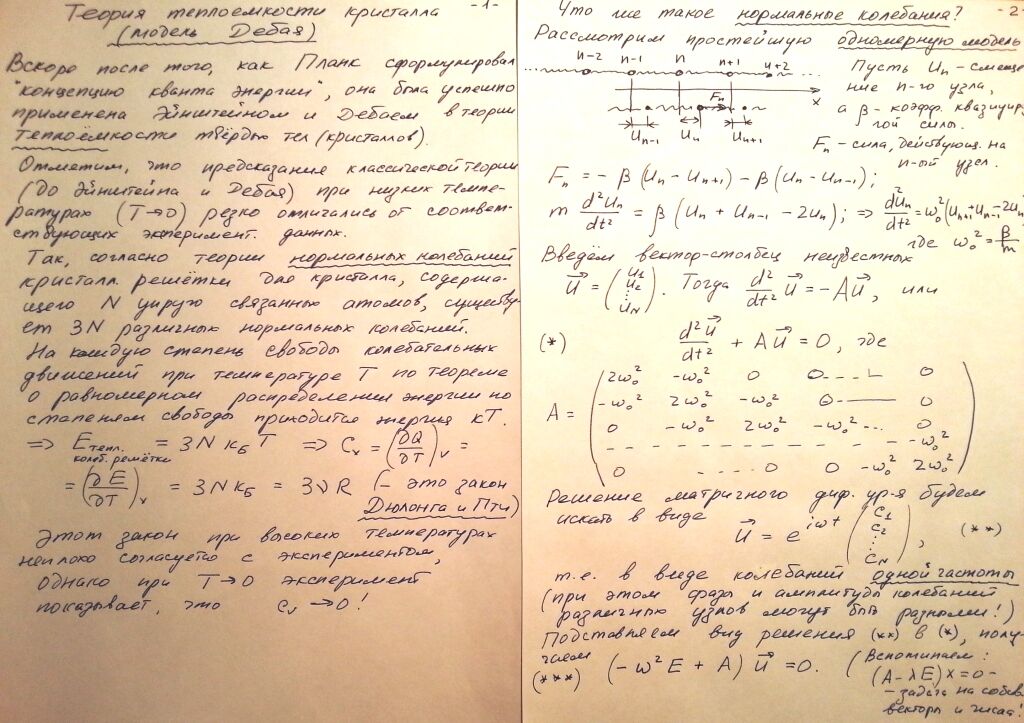 Теория теплоемкости кристалла
(модель Дебая)
-1-
Вскоре после того, как Планк сформулировал
"концепцию кванта энергии", она была успешно
применена Эйнштейном и Дебаем в теории
теплоёмкости твёрдых тел (кристаллов).
Отметим, что предсказание классической теории
(до Эйнштейна и Дебая) при низких темпе-
ратурах (T→0) резко отличались от соответ-
ствующих эксперимент. данных.
Так, согласно теории нормальных колебаний
кристалл. решётки для кристалла, содержа-
щего N упруго связанных атомов, существу-
ет 3N различных нормальных колебаний.
На каждую степень свободы колебательных
движений при температуре T по теореме
о равномерном распределении энергии по
степеням свободы приходится энергия kT.
=> E тепл. колеб. решётки = 3N k_Б T => C_v = (∂Q/∂T)_v =
= (∂E/∂T)_v = 3N k_Б = 3νR (- это закон
Дюлонга и Пти)
Этот закон при высоких температурах
неплохо согласуется с экспериментом,
однако при T→0 эксперимент
показывает, что c_v → 0!
Что же такое нормальные колебания?
-2-
Рассмотрим простейшую одномерную модель
n-2 n-1 n n+1 n+2
x
F_n
U_{n-1} U_n U_{n+1}
Пусть U_n - смеще-
ние n-го узла,
а β - коэфф. квазиупру-
гой силы.
F_n - сила, действующ. на
n-ый узел.
F_n = - β (U_n - U_{n+1}) - β (U_n - U_{n-1});
m d²U_n/dt² = β (U_n + U_{n-1} - 2U_n); => d²U_n/dt² = ω₀² (U_{n+1} + U_{n-1} - 2U_n)
где ω₀² = β/m
Введём вектор-столбец неизвестных
u⃗ = (u₁ u₂ ⋮ u_N). Тогда d²/dt² u⃗ = - A u⃗, или
(*) d²u⃗/dt² + A u⃗ = 0, где
A =
2ω₀² -ω₀² 0 0----- 0
-ω₀² 2ω₀² -ω₀² 0----- 0
0 -ω₀² 2ω₀² -ω₀²... 0
- - - - - - - - - - - - -ω₀²
0 ..... 0 0 -ω₀² 2ω₀²
Решение матричного диф. ур-я будем
искать в виде
u⃗ = e^{iωt} (c₁ c₂ ⋮ c_N), (**)
т.е. в виде колебаний одной частоты
(при этом фазы и амплитуды колебаний
различных узлов могут быть разными!)
Подставляем вид решения (**) в (*), полу-
чаем
(***) (-ω² E + A) u⃗ = 0.
(Вспоминаем:
(A - λE) x = 0 -
- задача на собств.
векторы и числа!